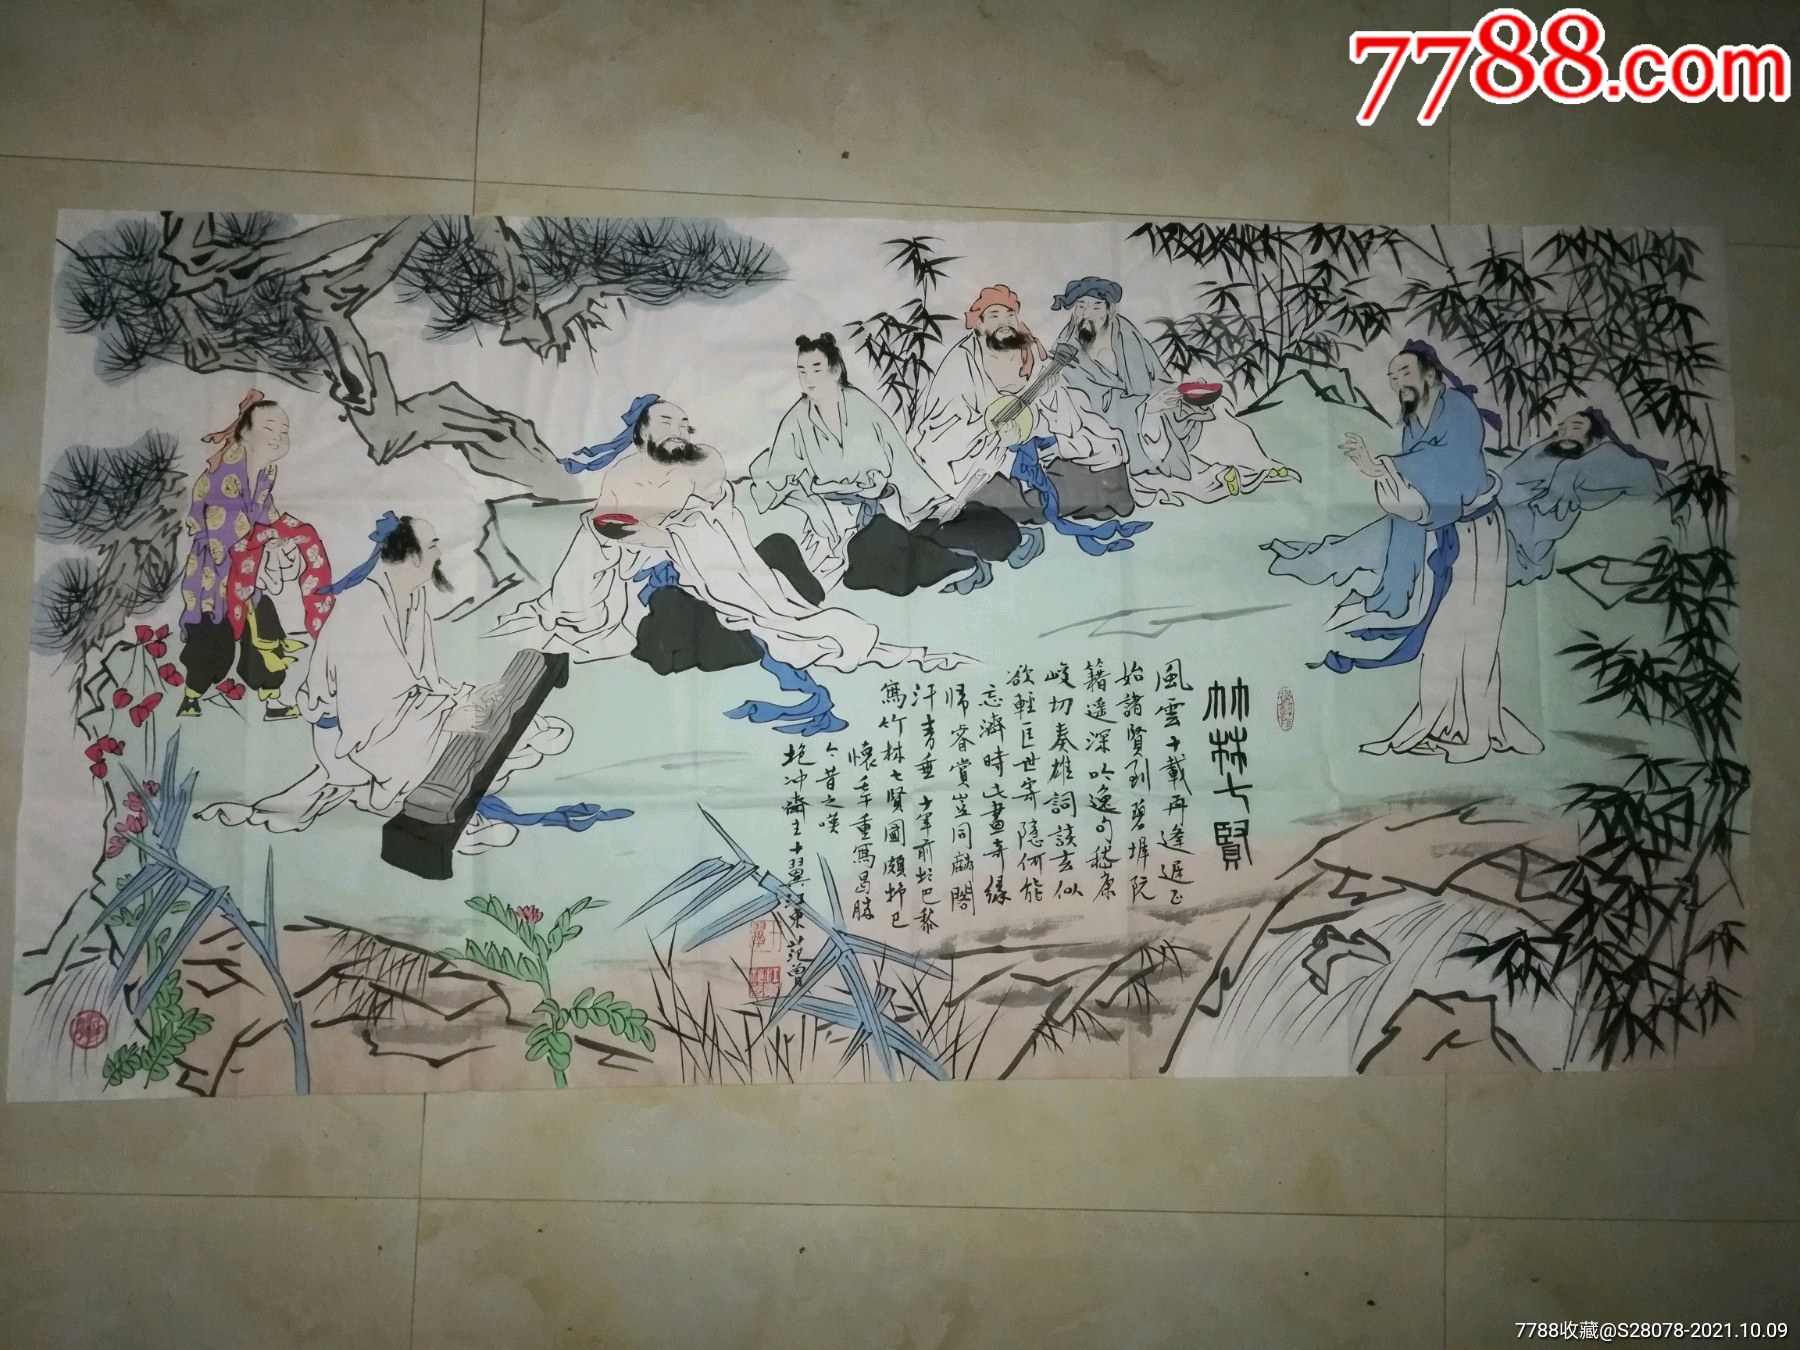 7788.com
竹林七賢
風雲十載再逢遲正
始諸賢到碧墀阮
籍遥深吟逸句嵇康
峻切奏雄詞談玄似
欲輕臣世寄隱何能
忘濟時此畫奇緣
歸睿賞豈同麟閣
汗青垂 十年前於巴黎
寫竹林七賢圖頗抒已
懷壬午重寫曷勝
今昔之嘆
抱冲齋主十翼江東范曾
7788收藏@S28078-2021.10.09